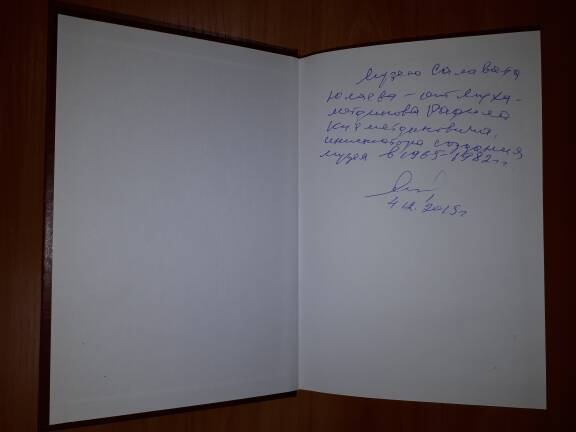 Музею Салавата
Юлаева – от Муха-
метдинова Рафила
Кияметдиновича,
инициатора создания
музея в 1965-1982 г.г.
4 12. 2015 г